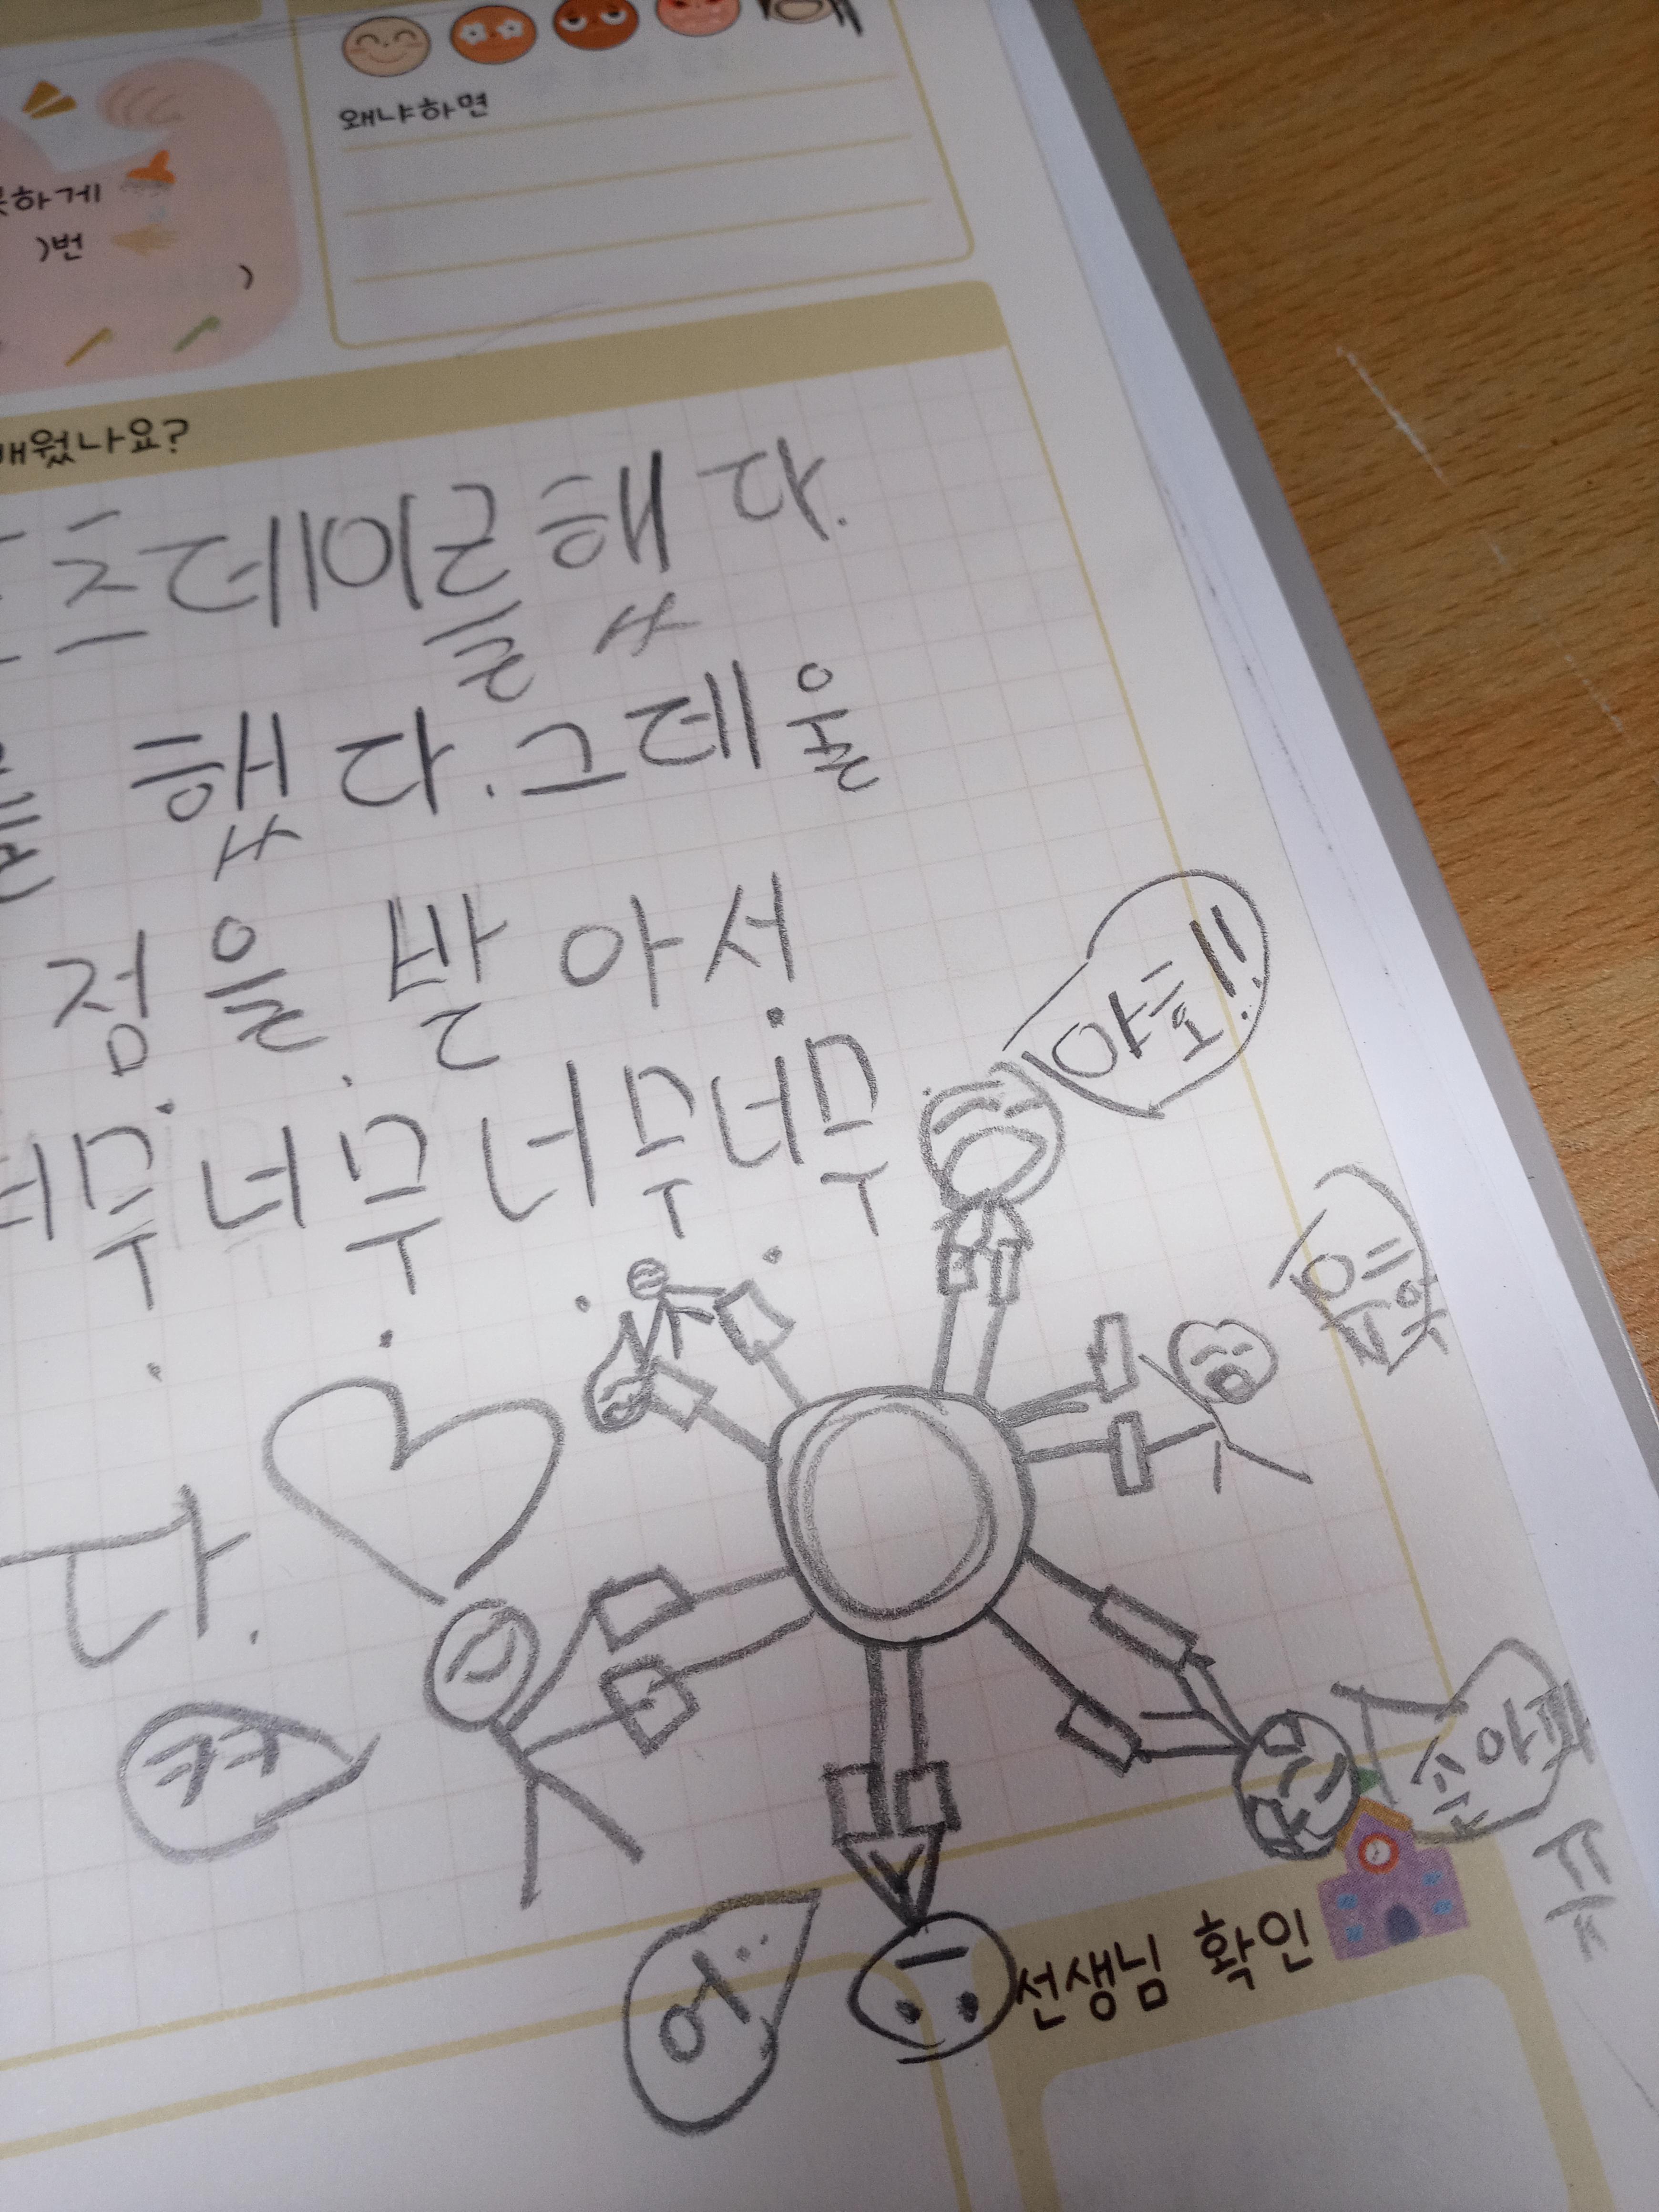 왜냐하면
못하게
)번
)
배웠나요?
츠데이를했다.
를 했다.그데울
점을 받아서
너무너무너무너무
다.
야호!!
으앗
ㅋㅋ
아파
어..
ㅠㅠ
선생님 확인